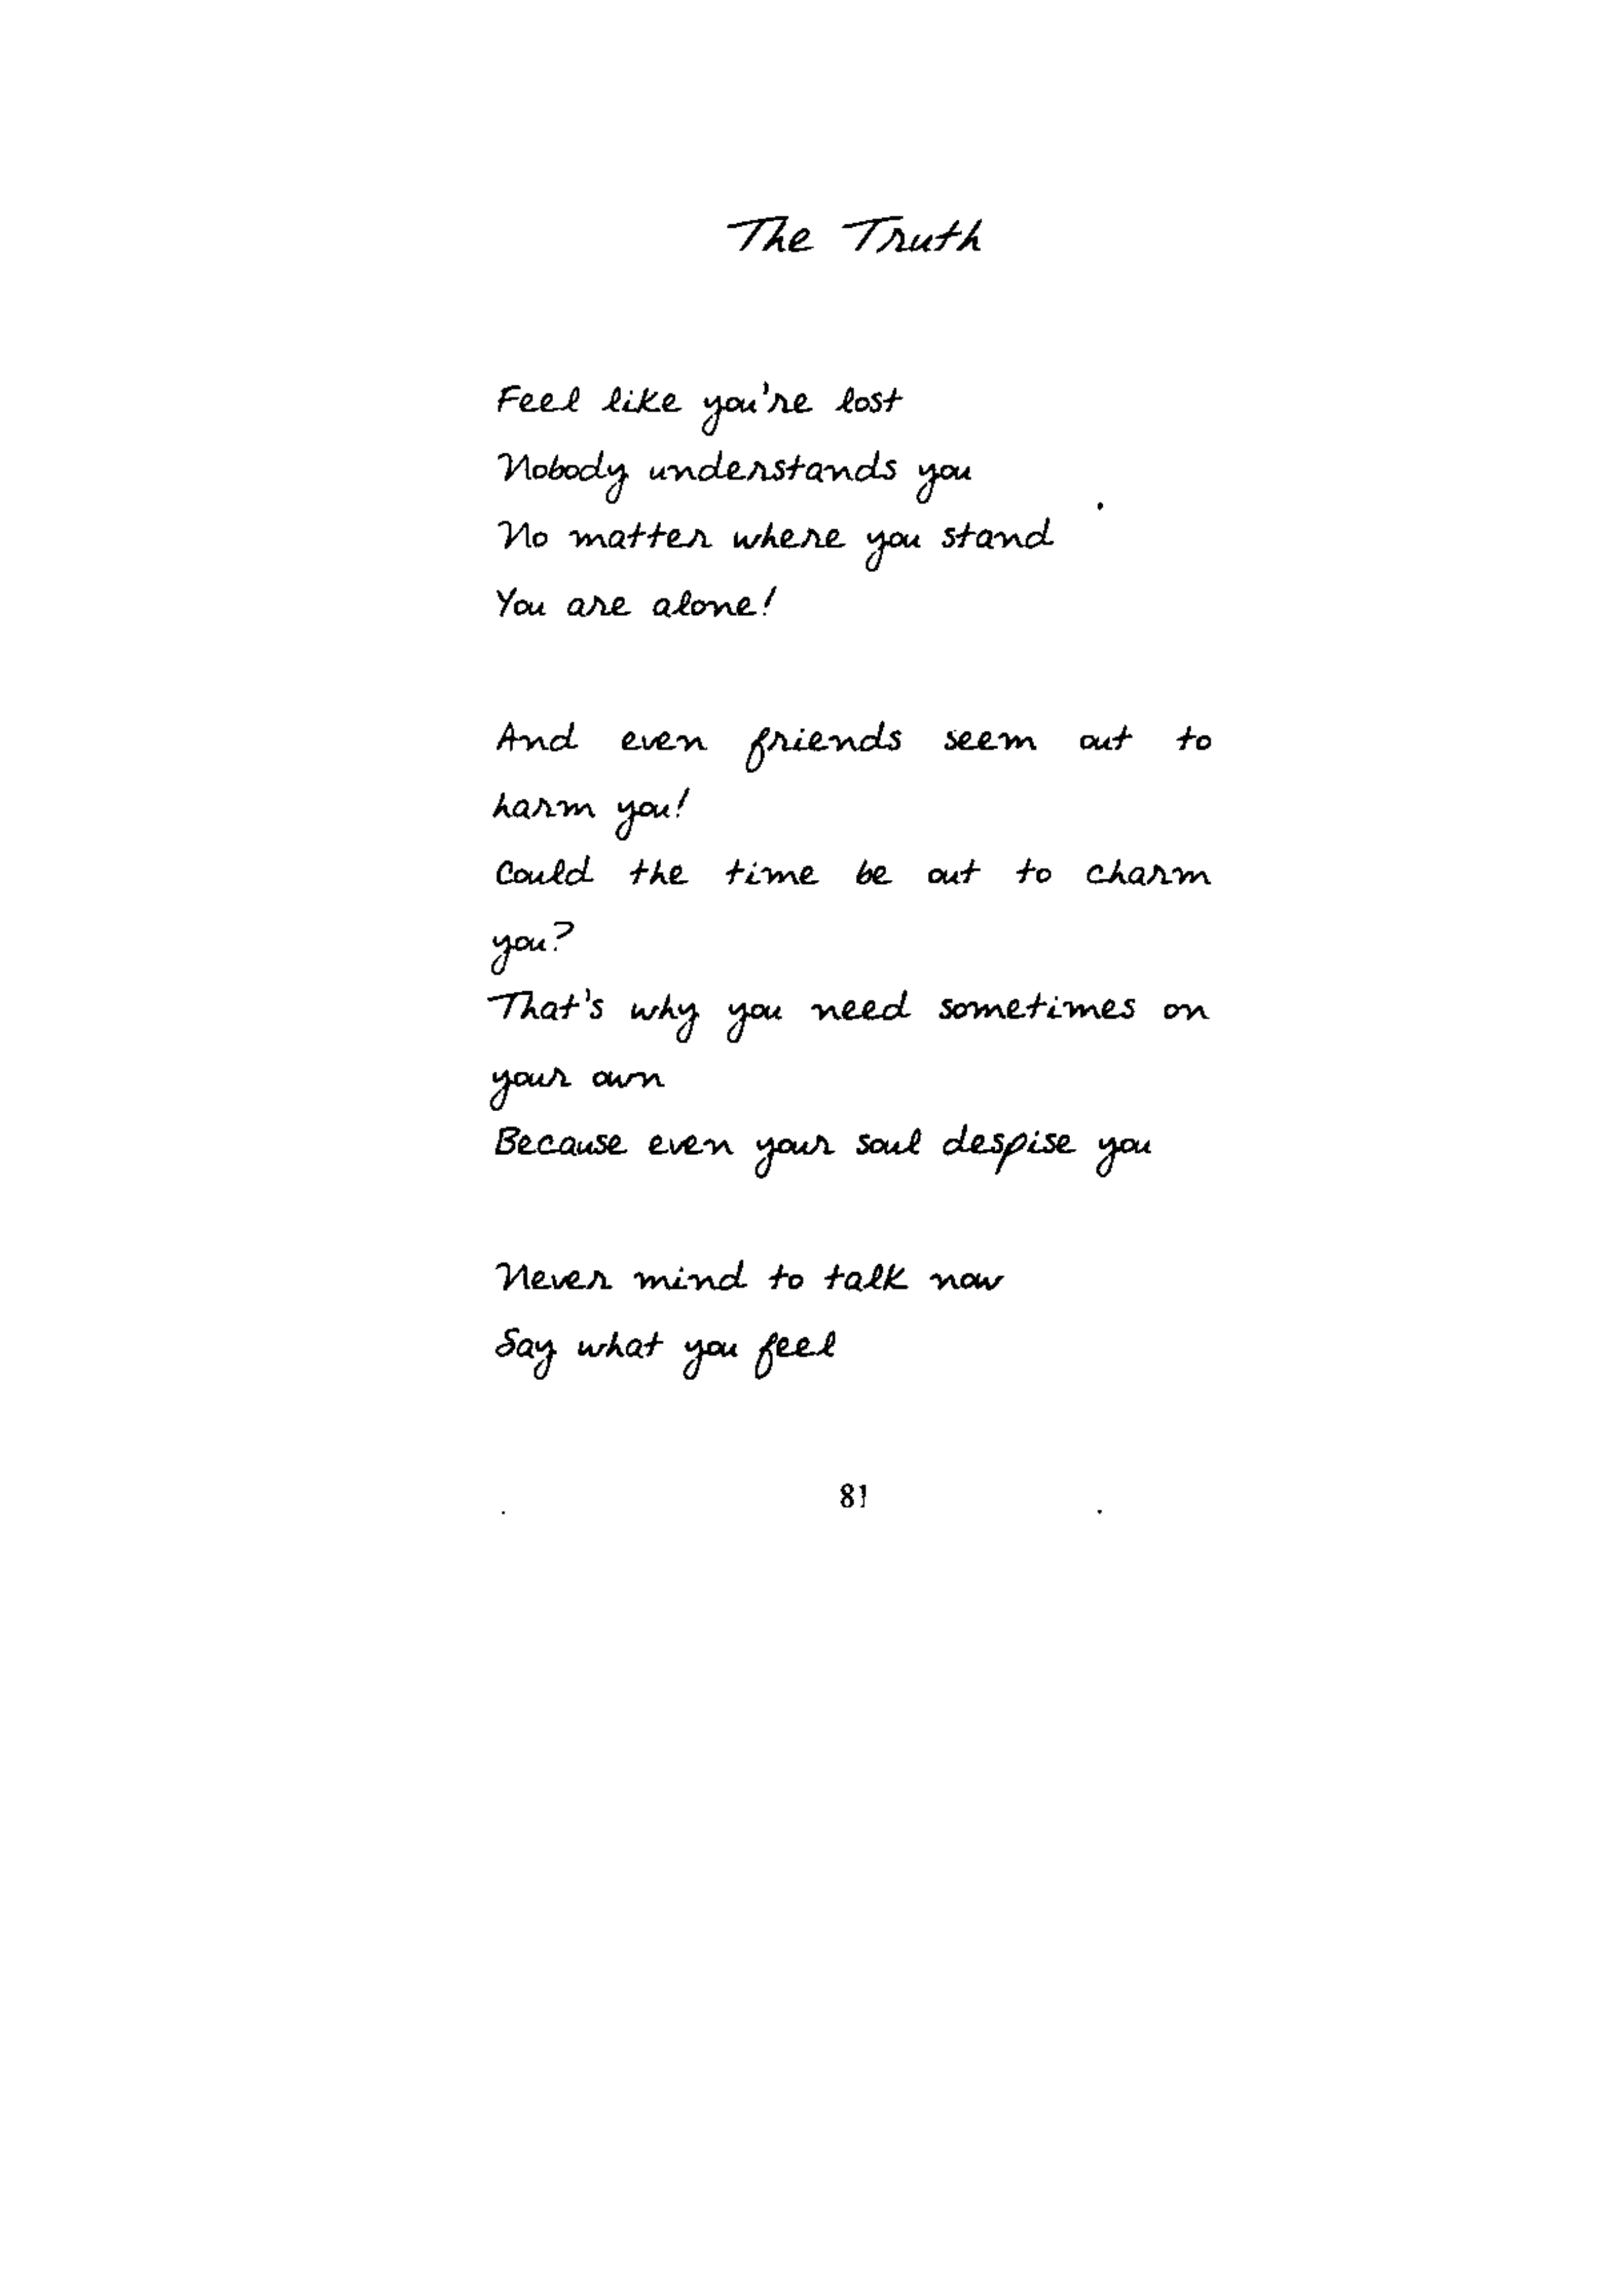 The Truth
Feel like you're lost
Nobody understands you
No matter where you stand
You are alone!
And even friends seem out to
harm you!
Could the time be out to charm
you?
That's why you need sometimes on
your own
Because even your soul despise you
Never mind to talk now
Say what you feel
81